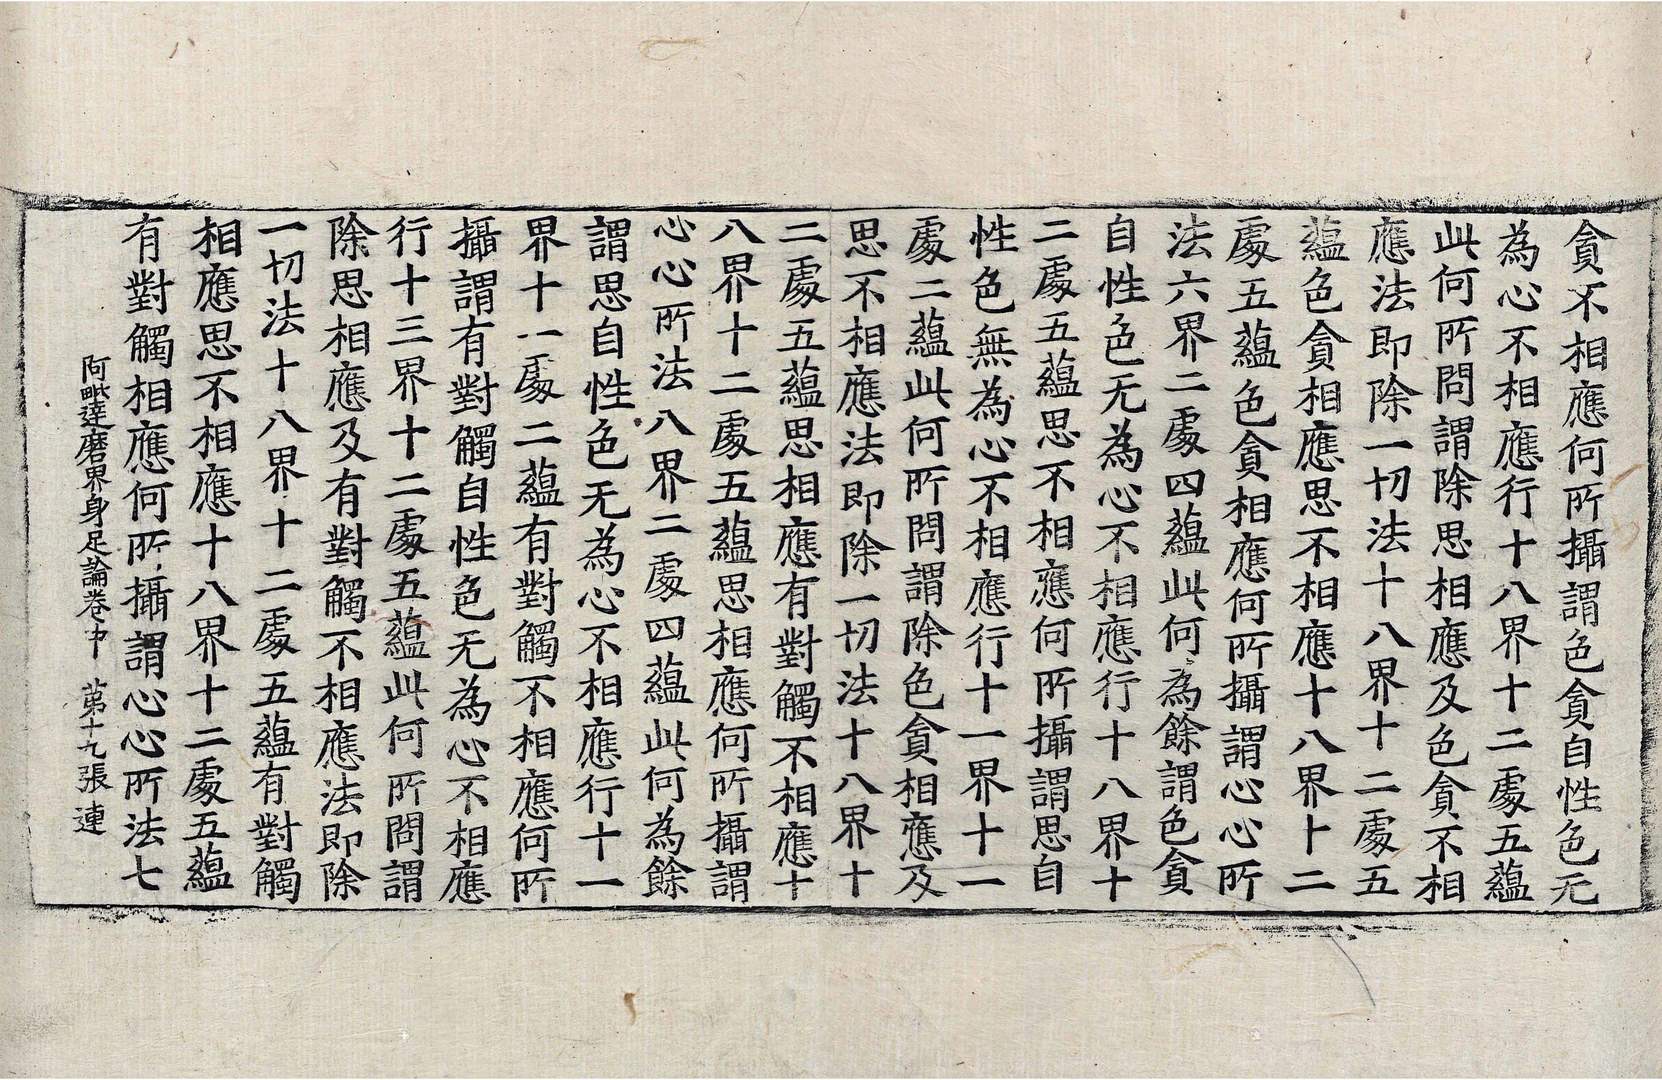 貪不相應何所攝謂色貪自性色无
為心不相應行十八界十二處五蘊
此何所問謂除思相應及色貪不相
應法即除一切法十八界十二處五
蘊色貪相應思不相應十八界十二
處五蘊色貪相應何所攝謂心心所
法六界二處四蘊此何為餘謂色貪
自性色无為心不相應行十八界十
二處五蘊思不相應何所攝謂思自
性色無為心不相應行十一界十一
處二蘊此何所問謂除色貪相應及
思不相應法即除一切法十八界十
二處五蘊思相應有對觸不相應十
八界十二處五蘊思相應何所攝謂
心心所法八界二處四蘊此何為餘
謂思自性色无為心不相應行十一
界十一處二蘊有對觸不相應何所
攝謂有對觸自性色无為心不相應
行十三界十二處五蘊此何所問謂
除思相應及有對觸不相應法即除
一切法十八界十二處五蘊有對觸
相應思不相應十八界十二處五蘊
有對觸相應何所攝謂心心所法七
阿毗達磨界身足論卷中 第十九張 連